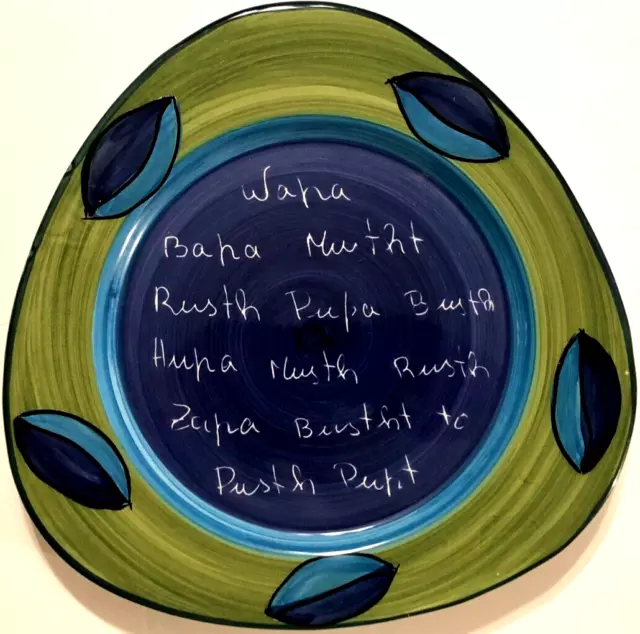 Wapa
Bapa Mustht
Rusth Pupa Busth
Hupa Musth Rusth
Zapa Bustht to
Pusth Pupt